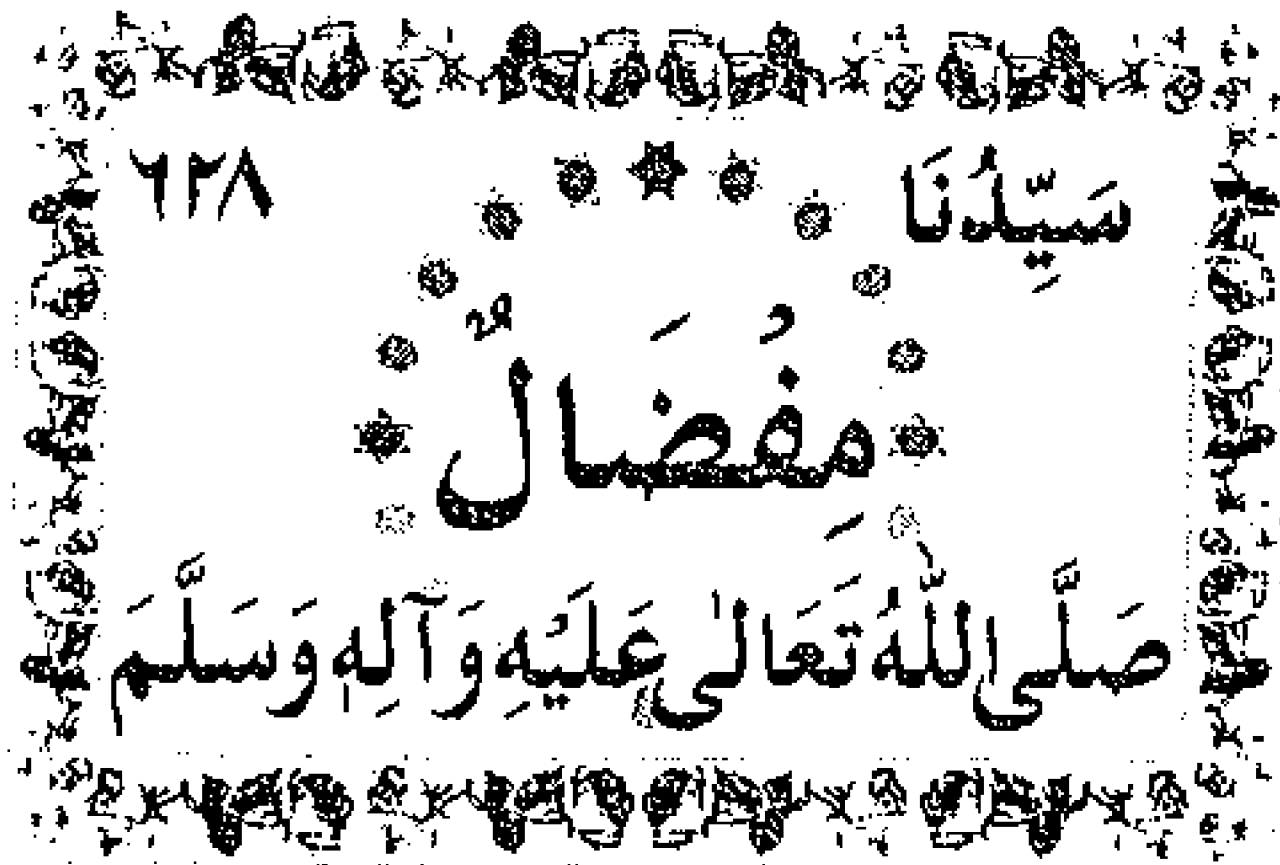 سَيِّدُنَا ٦٢٨
مِفُضَالٌ
صَلَّى اللّٰهُ تَعَالٰى عَلَيْهِ وَآلِهٖ وَسَلَّمَ